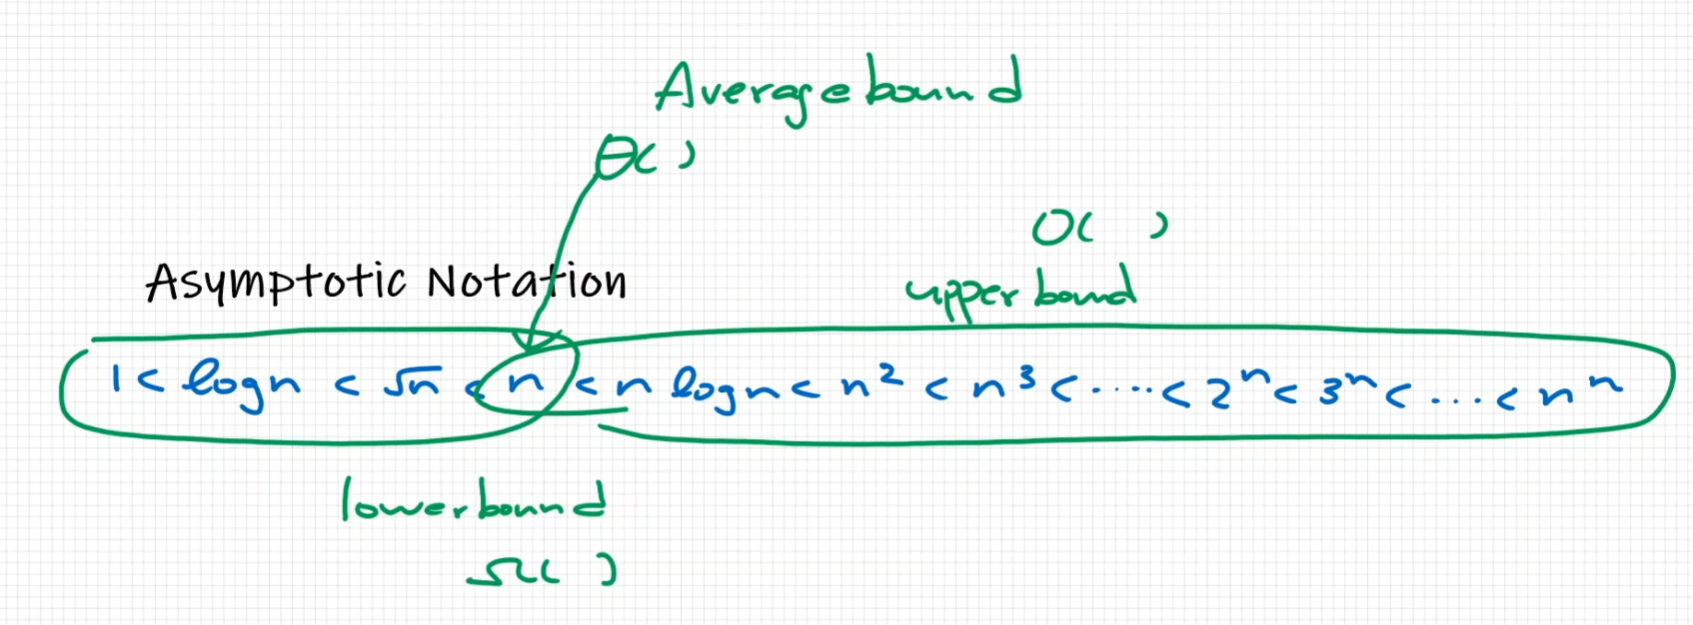 Average bound
θ( )
O( )
upper bound
Asymptotic Notation
1 < log n < √n < n < n log n < n² < n³ < ..... < 2ⁿ < 3ⁿ < ... < nⁿ
lower bound
Ω( )